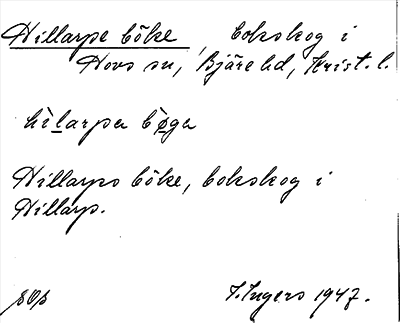 Hillarps böke, bokskog i
Hovs sn, Bjäre hd, Krist. l.
hìlarpa bøga
Hillarps böke, bokskog i
Hillarp.
I. Ingers 1947.